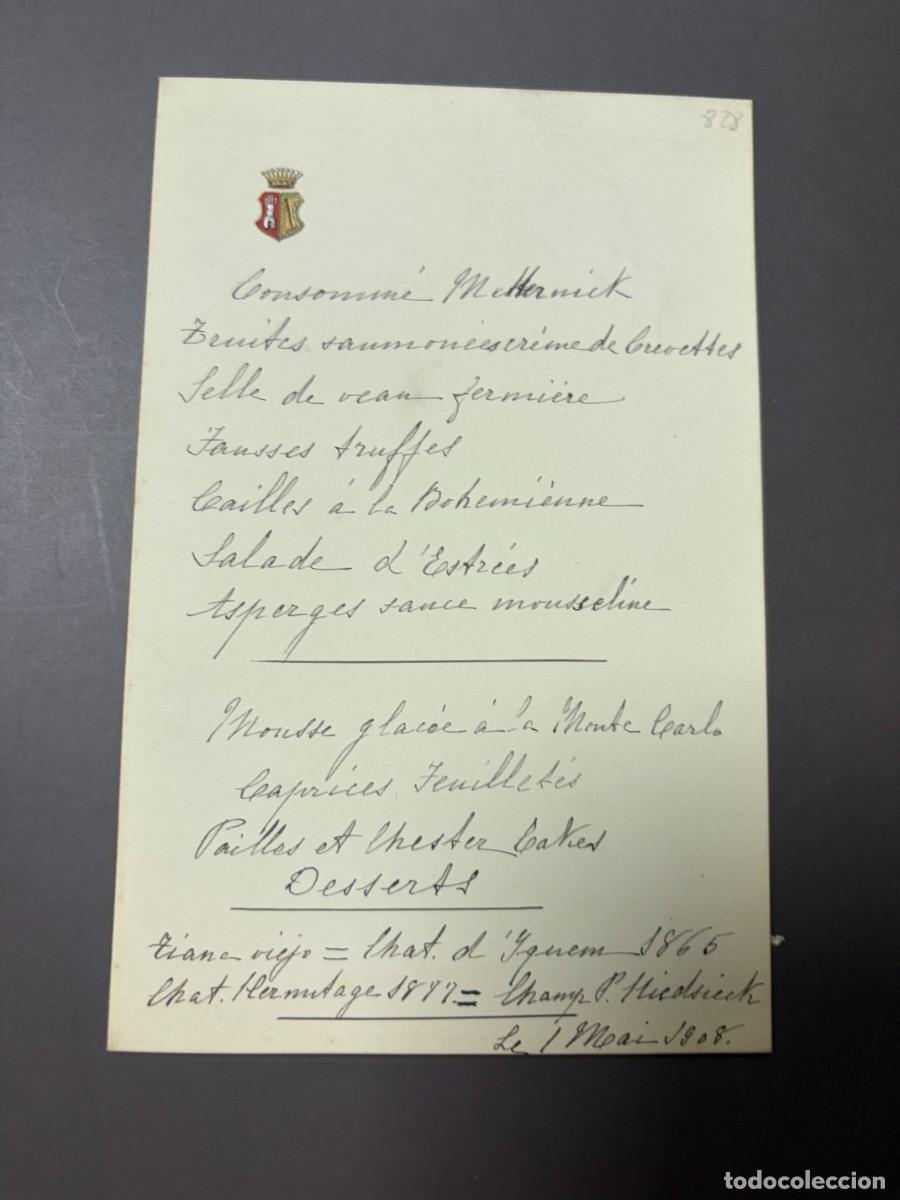 828
Consommé Metternick
Truites saumonées crème de Crevettes
Selle de veau fermière
Fausses truffes
Cailles à la Bohemiènne
Salade d'Estrées
Asperges sauce mousseline
Mousse glacée à la Monte Carlo
Caprices Feuilletés
Pailles et Chester Cakes
Desserts
viejo = Chat. d'Yquem 1865
Chat. Hermitage 1877 = Champ P. Hiedsieck
Le 1 Mai 1908.
todocoleccion